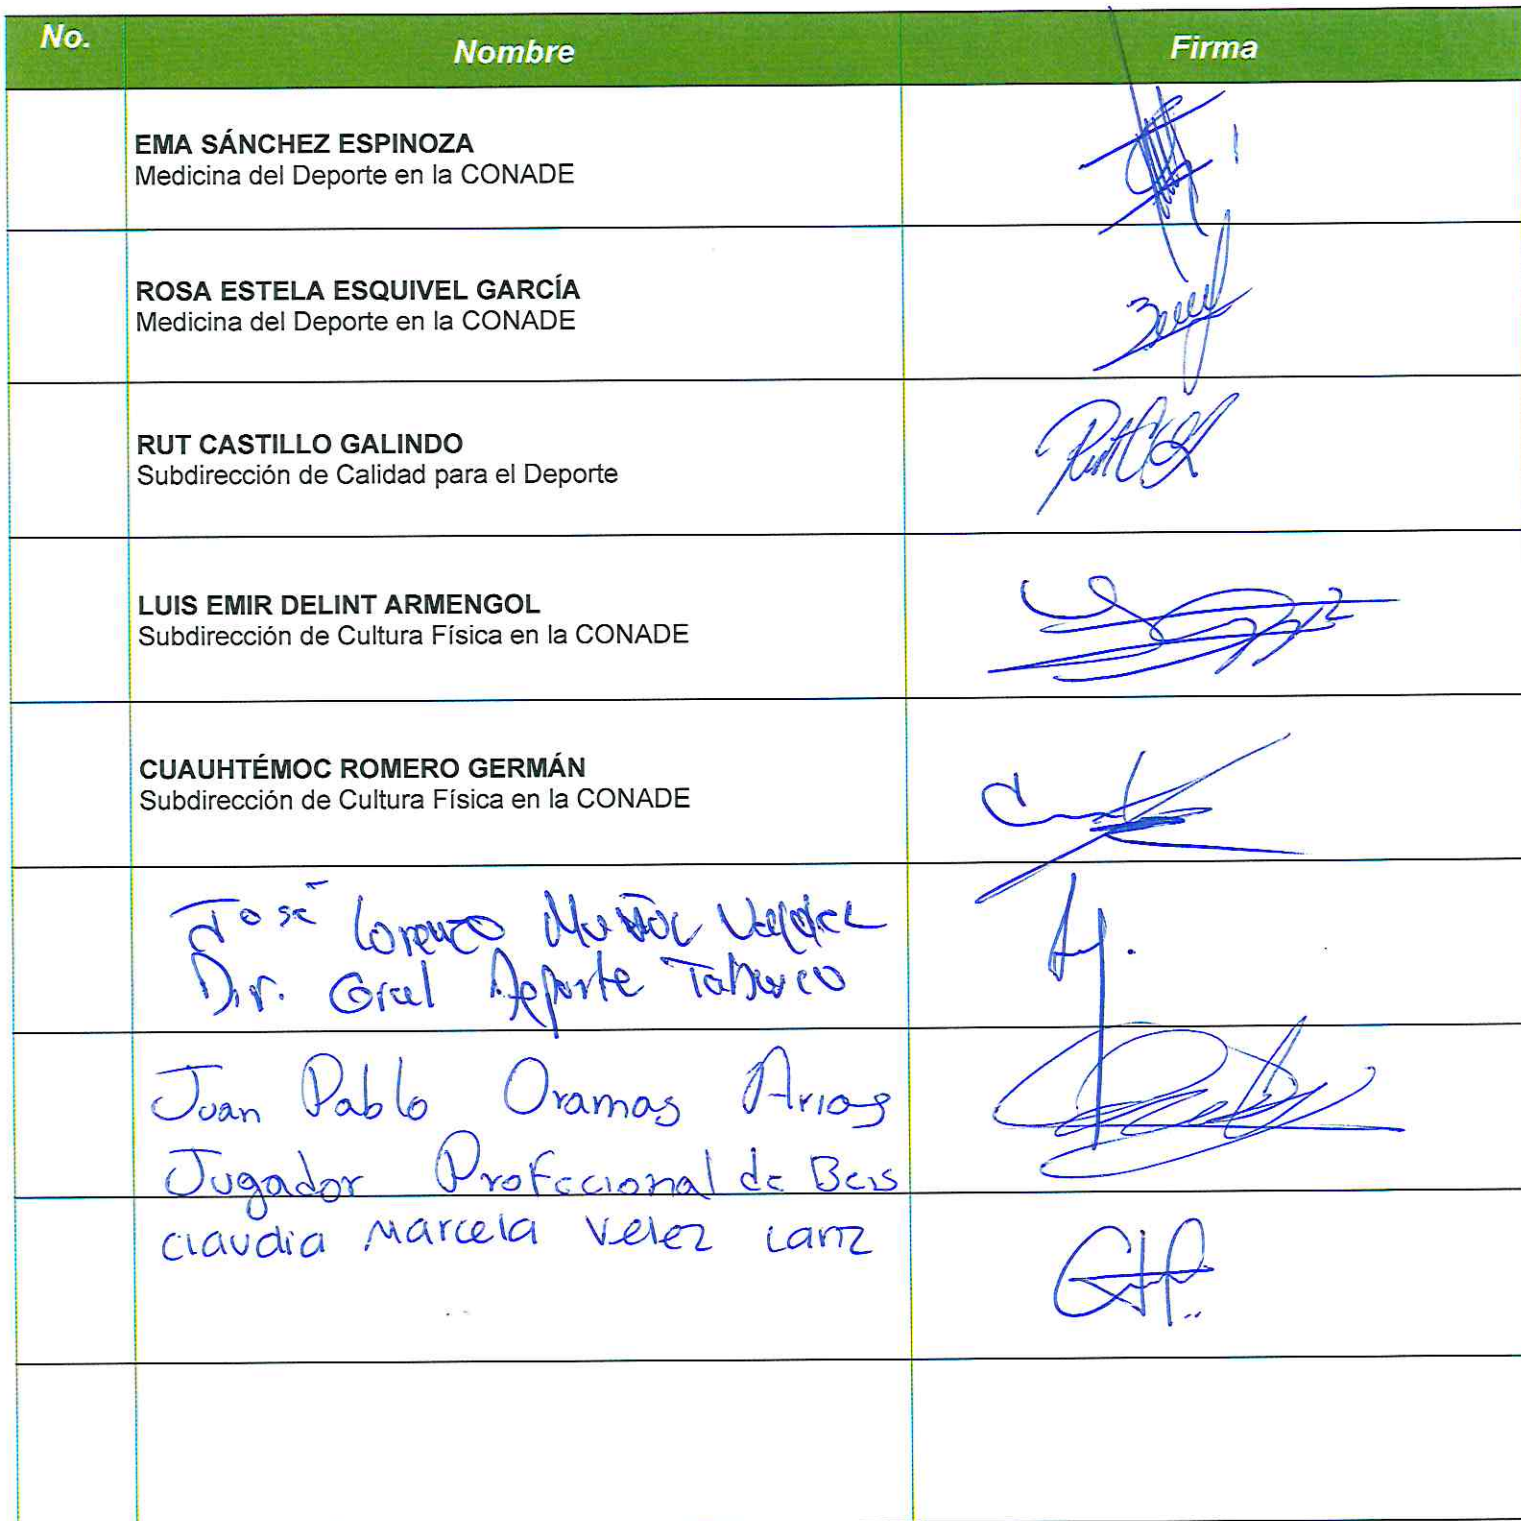 No. Nombre Firma
EMA SÁNCHEZ ESPINOZA
Medicina del Deporte en la CONADE
ROSA ESTELA ESQUIVEL GARCÍA
Medicina del Deporte en la CONADE
RUT CASTILLO GALINDO
Subdirección de Calidad para el Deporte
LUIS EMIR DELINT ARMENGOL
Subdirección de Cultura Física en la CONADE
CUAUHTÉMOC ROMERO GERMÁN
Subdirección de Cultura Física en la CONADE
José Lorenzo Muñoz
Dir. Gral Deporte Tabasco
Juan Pablo Oramas Arias
Jugador Profecional de Beis
Claudia Marcela Velez Lanz